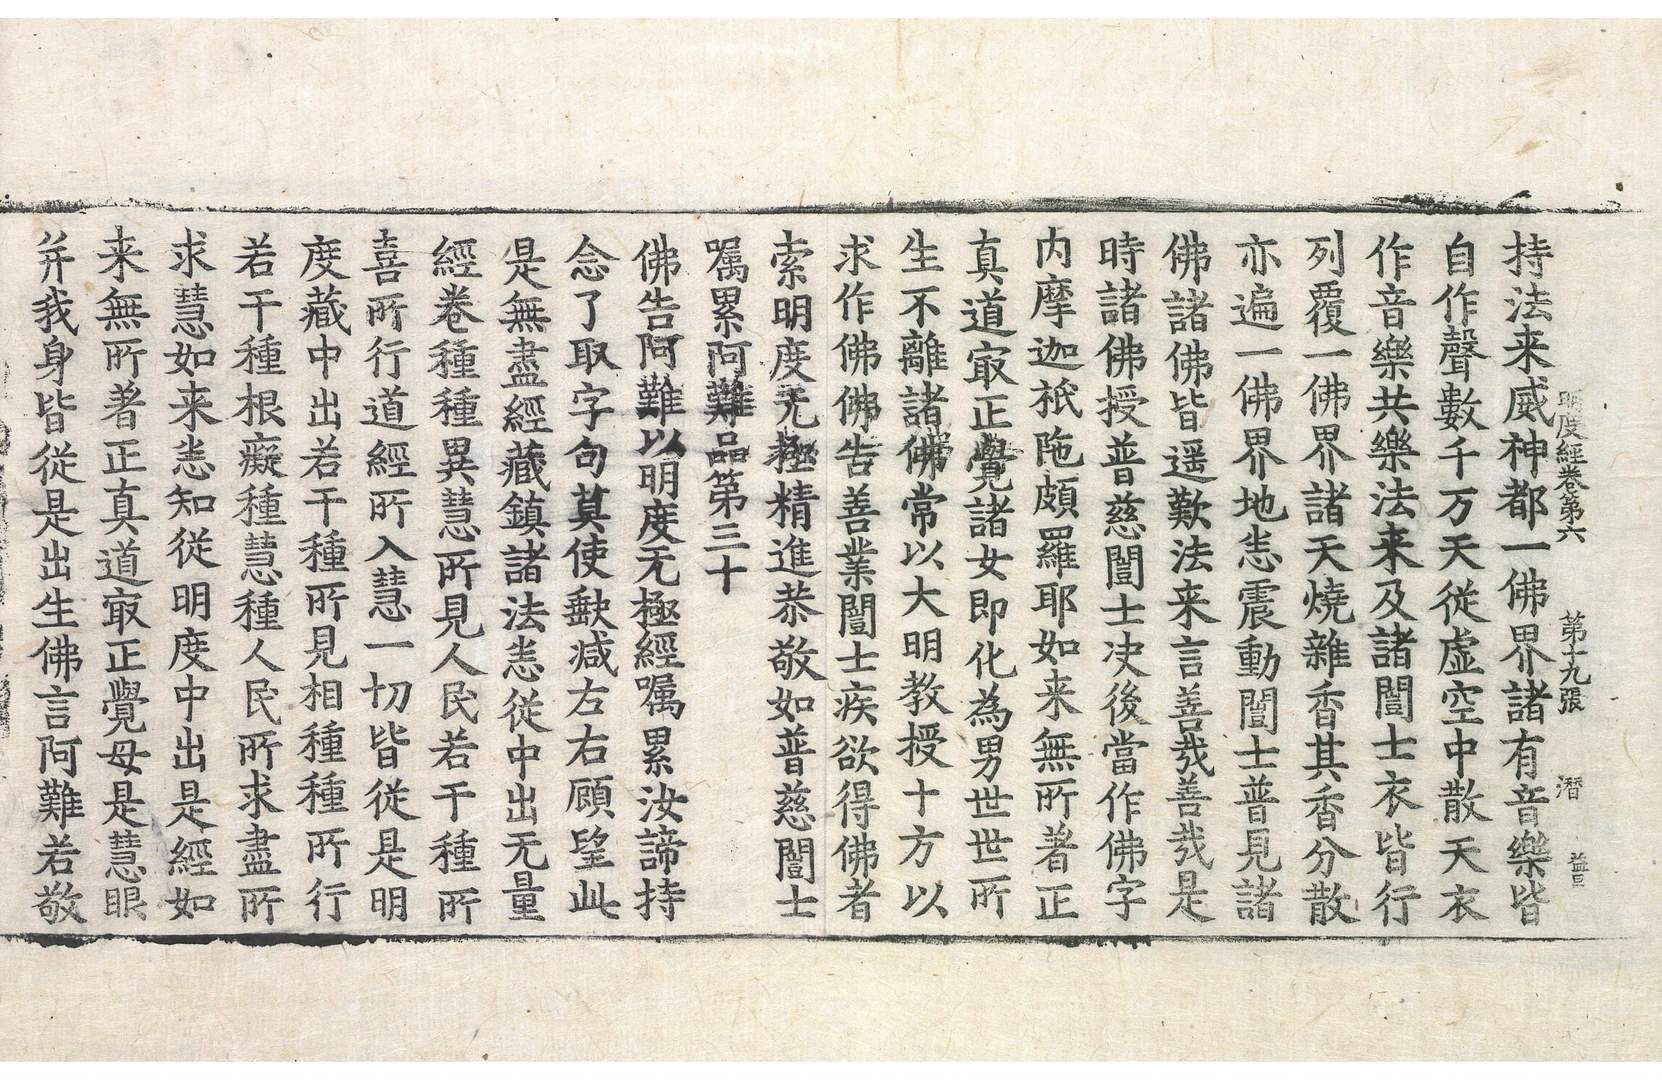 明度經卷第六 第十九張 潛 益
持法来威神都一佛界諸有音樂皆
自作聲數千万天從虛空中散天衣
作音樂共樂法来及諸闓士衣皆行
列覆一佛界諸天燒雜香其香分散
亦遍一佛界地悉震動闓士普見諸
佛諸佛皆遥歎法来言善哉善哉是
時諸佛授普慈闓士决後當作佛字
内摩迦祇陁頗羅耶如来無所著正
真道㝡正覺諸女即化為男世世所
生不離諸佛常以大明教授十方以
求作佛佛告善業闓士疾欲得佛者
索明度无極精進恭敬如普慈闓士
嘱累阿難品第三十
佛告阿難以明度无極經嘱累汝諦持
念了取字句莫使缺减左右顧望此
是無盡經藏鎮諸法悉從中出无量
經卷種種異慧所見人民若干種所
喜所行道經所入慧一切皆從是明
度藏中出若干種所見相種種所行
若干種根癡種慧種人民所求盡所
求慧如来悉知從明度中出是經如
来無所著正真道㝡正覺母是慧眼
并我身皆從是出生佛言阿難若敬